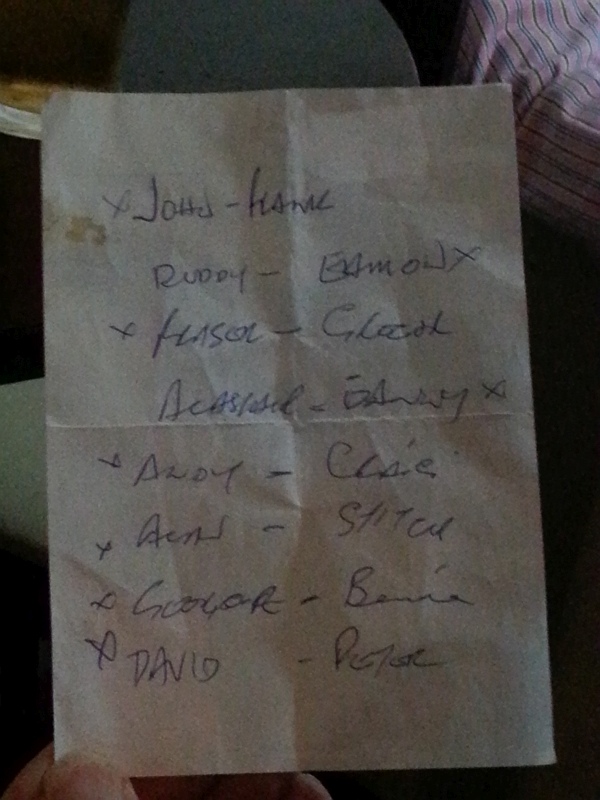 x JOHN - FRANK
RUDDY - EAMON x
x FRASER - GREGOR
ALASTAIR - DANNY x
x ANDY - CRAIG
x ALAN - STITCH
x GEORGE - Bernie
x DAVID - PETER